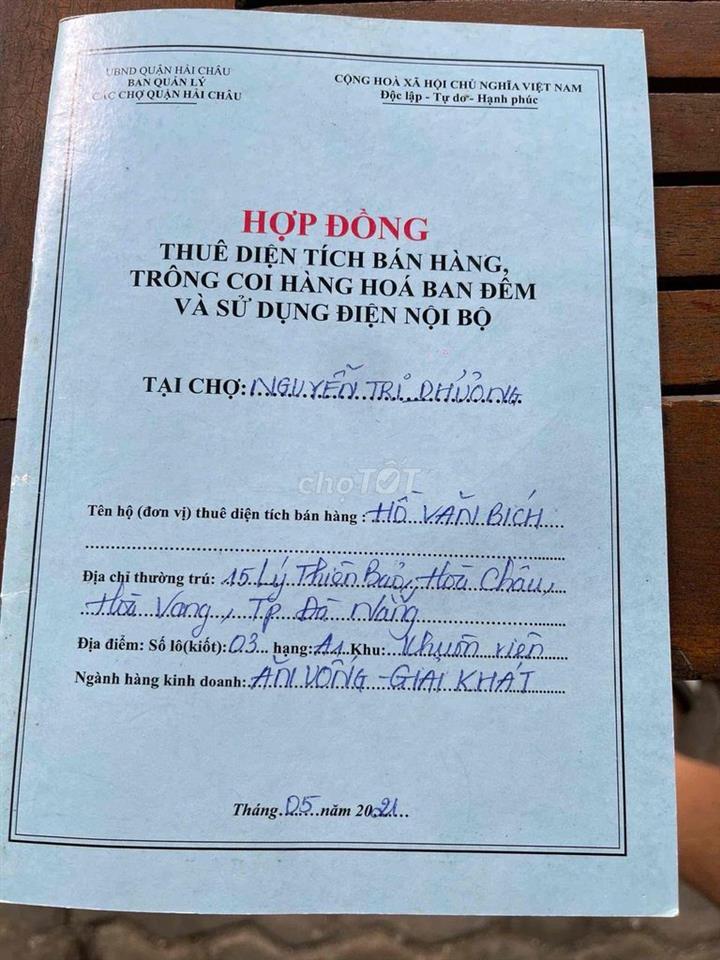 UBND QUẬN HẢI CHÂU
BAN QUẢN LÝ
CÁC CHỢ QUẬN HẢI CHÂU
CỘNG HOÀ XÃ HỘI CHỦ NGHĨA VIỆT NAM
Độc lập - Tự do - Hạnh phúc
HỢP ĐỒNG
THUÊ DIỆN TÍCH BÁN HÀNG,
TRÔNG COI HÀNG HOÁ BAN ĐÊM
VÀ SỬ DỤNG ĐIỆN NỘI BỘ
TẠI CHỢ: NGUYỄN TRI PHƯƠNG
chợTỐT
Tên hộ (đơn vị) thuê diện tích bán hàng : HỒ VĂN BÍCH
Địa chỉ thường trú: 15 Lý Thiên Bảo, Hoà Châu,
Hoà Vang, Tp Đà Nẵng
Địa điểm: Số lô(kiốt): 03 hạng: A1 Khu: Khuôn viên
Ngành hàng kinh doanh: ĂN UỐNG - GIẢI KHÁT
Tháng 05 năm 2021